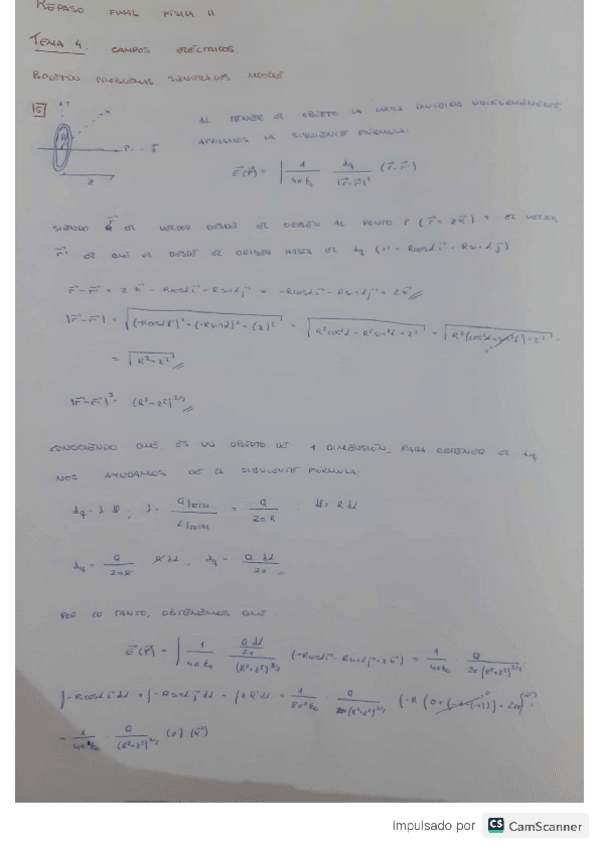 REPASO FINAL FISICA II
TEMA 4. CAMPOS ELÉCTRICOS.
BOLETÍN PROBLEMAS MOODLE
5
AL TENER EL OBJETO LA CARGA DIVIDIDA UNIFORMEMENTE,
APLICAMOS LA SIGUIENTE FÓRMULA:
E(P) = ∫ 1/4πε₀ dq/|r-r'|³ (r-r')
z
SIENDO r EL VECTOR DESDE EL ORIGEN AL PUNTO P (r = zk) Y EL VECTOR
r' EL QUE VA DESDE EL ORIGEN HASTA EL dq (r' = Rcosα i + Rsinα j)
r-r' = zk - Rcosα i - Rsinα j = -Rcosα i - Rsinα j + zk //
|r-r'| = √((-Rcosα)² + (-Rsinα)² + (z)²) = √(R²cos²α + R²sin²α + z²) = √(R²(cos²α+sin²α)+z²)
= √(R²+z²) //
|r-r'|³ = (R²+z²)^3/2 //
CONOCIENDO QUE ES UN OBJETO DE 1 DIMENSIÓN, PARA OBTENER EL dq
NOS AYUDAMOS DE LA SIGUIENTE FÓRMULA:
dq = λ dl ; λ = Q TOTAL / L TOTAL = Q/2πR ; dl = R dα
dq = Q/2πR R dα ; dq = Q dα/2π
POR LO TANTO, OBTENEMOS QUE
E(P) = ∫ 1/4πε₀ (Q dα/2π)/(R²+z²)^3/2 (-Rcosα i - Rsinα j + zk) = 1/4πε₀ Q/2π(R²+z²)^3/2
∫-Rcosα i dα + ∫-Rsinα j dα + ∫zk dα = 1/8π²ε₀ · Q/(R²+z²)^3/2
= 1/4πε₀ · Q/(R²+z²)^3/2 (z) (k)
Impulsado por CS CamScanner